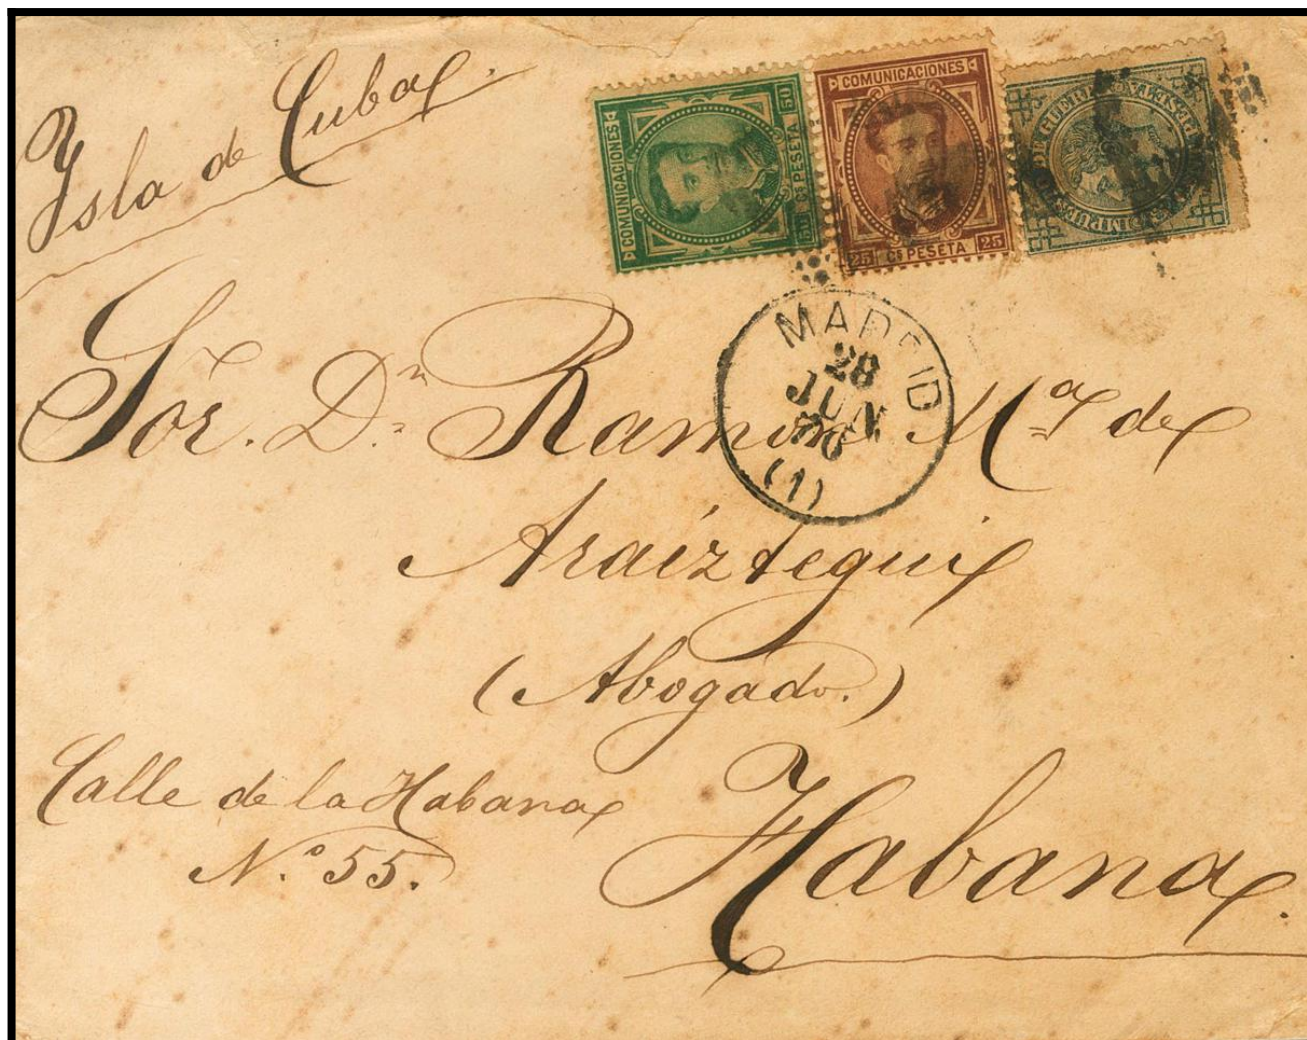 Ysla de Cuba.
COMUNICACIONES
50 Cs PESETA 50
COMUNICACIONES
25 Cs PESETA 25
IMPUESTO DE GUERRA
MADRID
28
JUN
76
(1)
Sor. Dn. Ramon Ma. de
Araiztegui
(Abogado.)
Calle de la Habana
N.o 55.
Habana.